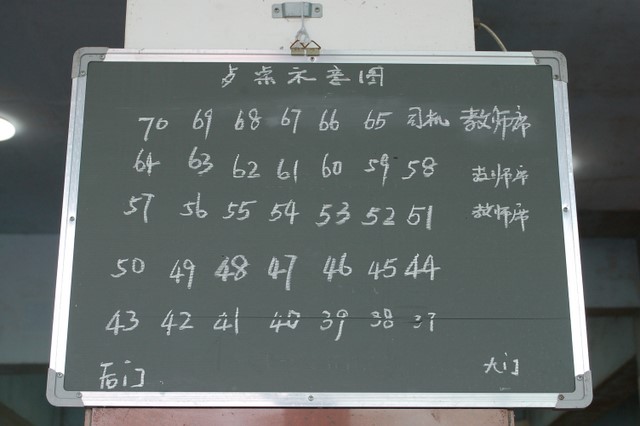 桌示意图
70 69 68 67 66 65 司机 教师席
64 63 62 61 60 59 58 教师席
57 56 55 54 53 52 51 教师席
50 49 48 47 46 45 44
43 42 41 40 39 38 37
后门 大门